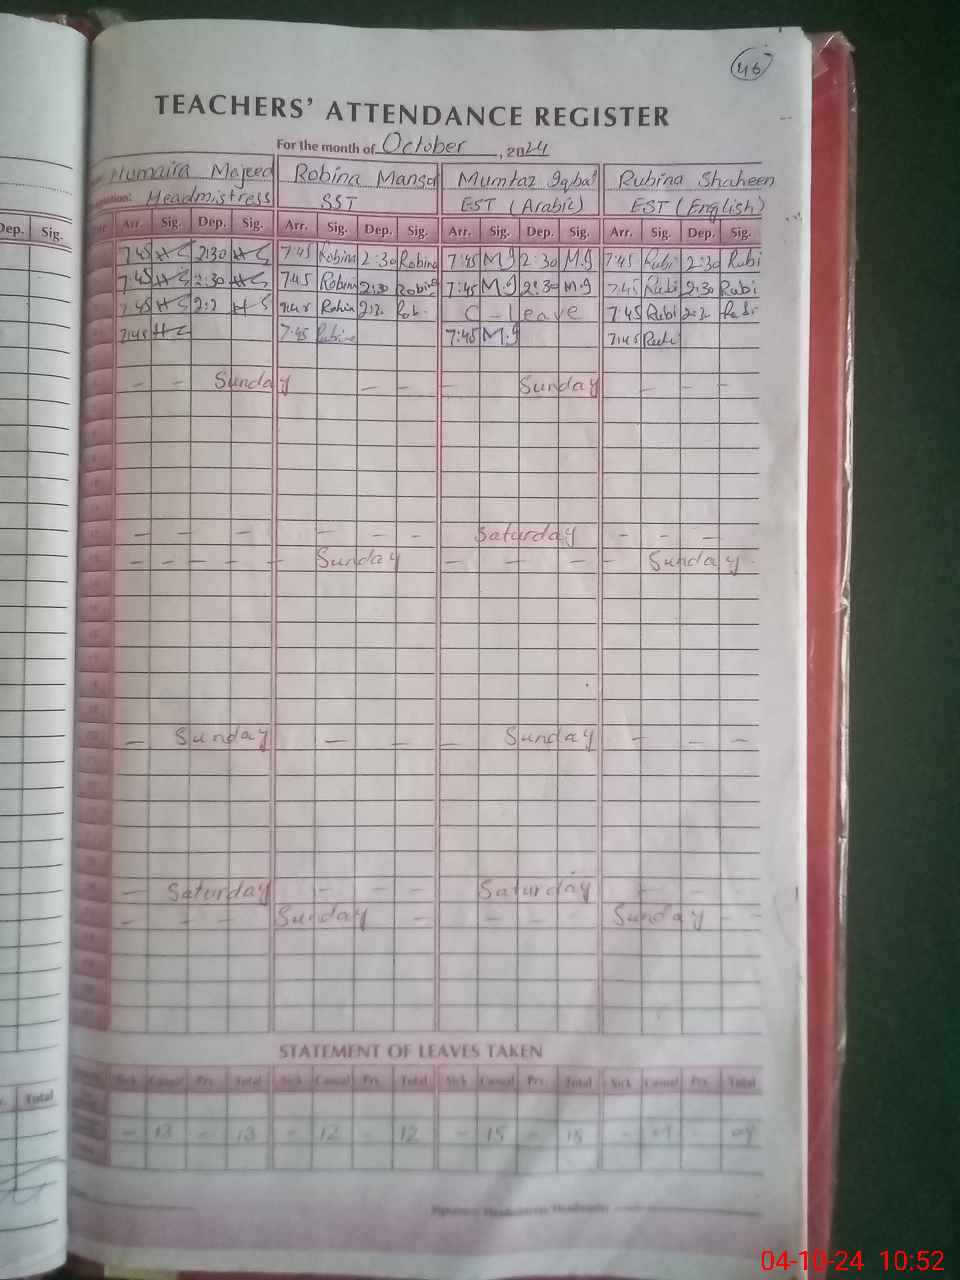 46
TEACHERS' ATTENDANCE REGISTER
For the month of October, 2024
Humaira Majeed Robina Mansd Mumtaz Iqbal Rubina Shaheen
Headmistress SST EST (Arabic) EST (English)
Dep. Sig. Arr. Sig. Dep. Sig. Arr. Sig. Dep. Sig. Arr. Sig. Dep. Sig. Arr. Sig. Dep. Sig.
7:45 HS 2:30 HS 7:45 Robina 2:30 Robina 7:45 M.I 2:30 M.I 7:45 Rubi 2:30 Rubi
7:45 HS 2:30 HS 7:45 Robina 2:30 Robina 7:45 M.I 2:30 M.I 7:45 Rubi 2:30 Rubi
7:45 HS 2:2 HS Robin 2:2 Rob. C - leave 7:45 Rubi 2:2
7:45 HS 7:45 7:45 M.I 7:45 Rubi
- - Sunday - - - Sunday - - -
- - - - - - Saturday - - -
- - - - - Sunday - - - - Sunday
- Sunday - - - Sunday - - -
- Saturday - - - Saturday - - -
- - - Sunday - - - - Sunday - -
STATEMENT OF LEAVES TAKEN
Sick Casual Prv. Total Sick Casual Prv. Total Sick Casual Prv. Total Sick Casual Prv. Total
Total
- 13 - 13 - 12 - 12 - 15 - 15 - 09 - 09
04-10-24 10:52